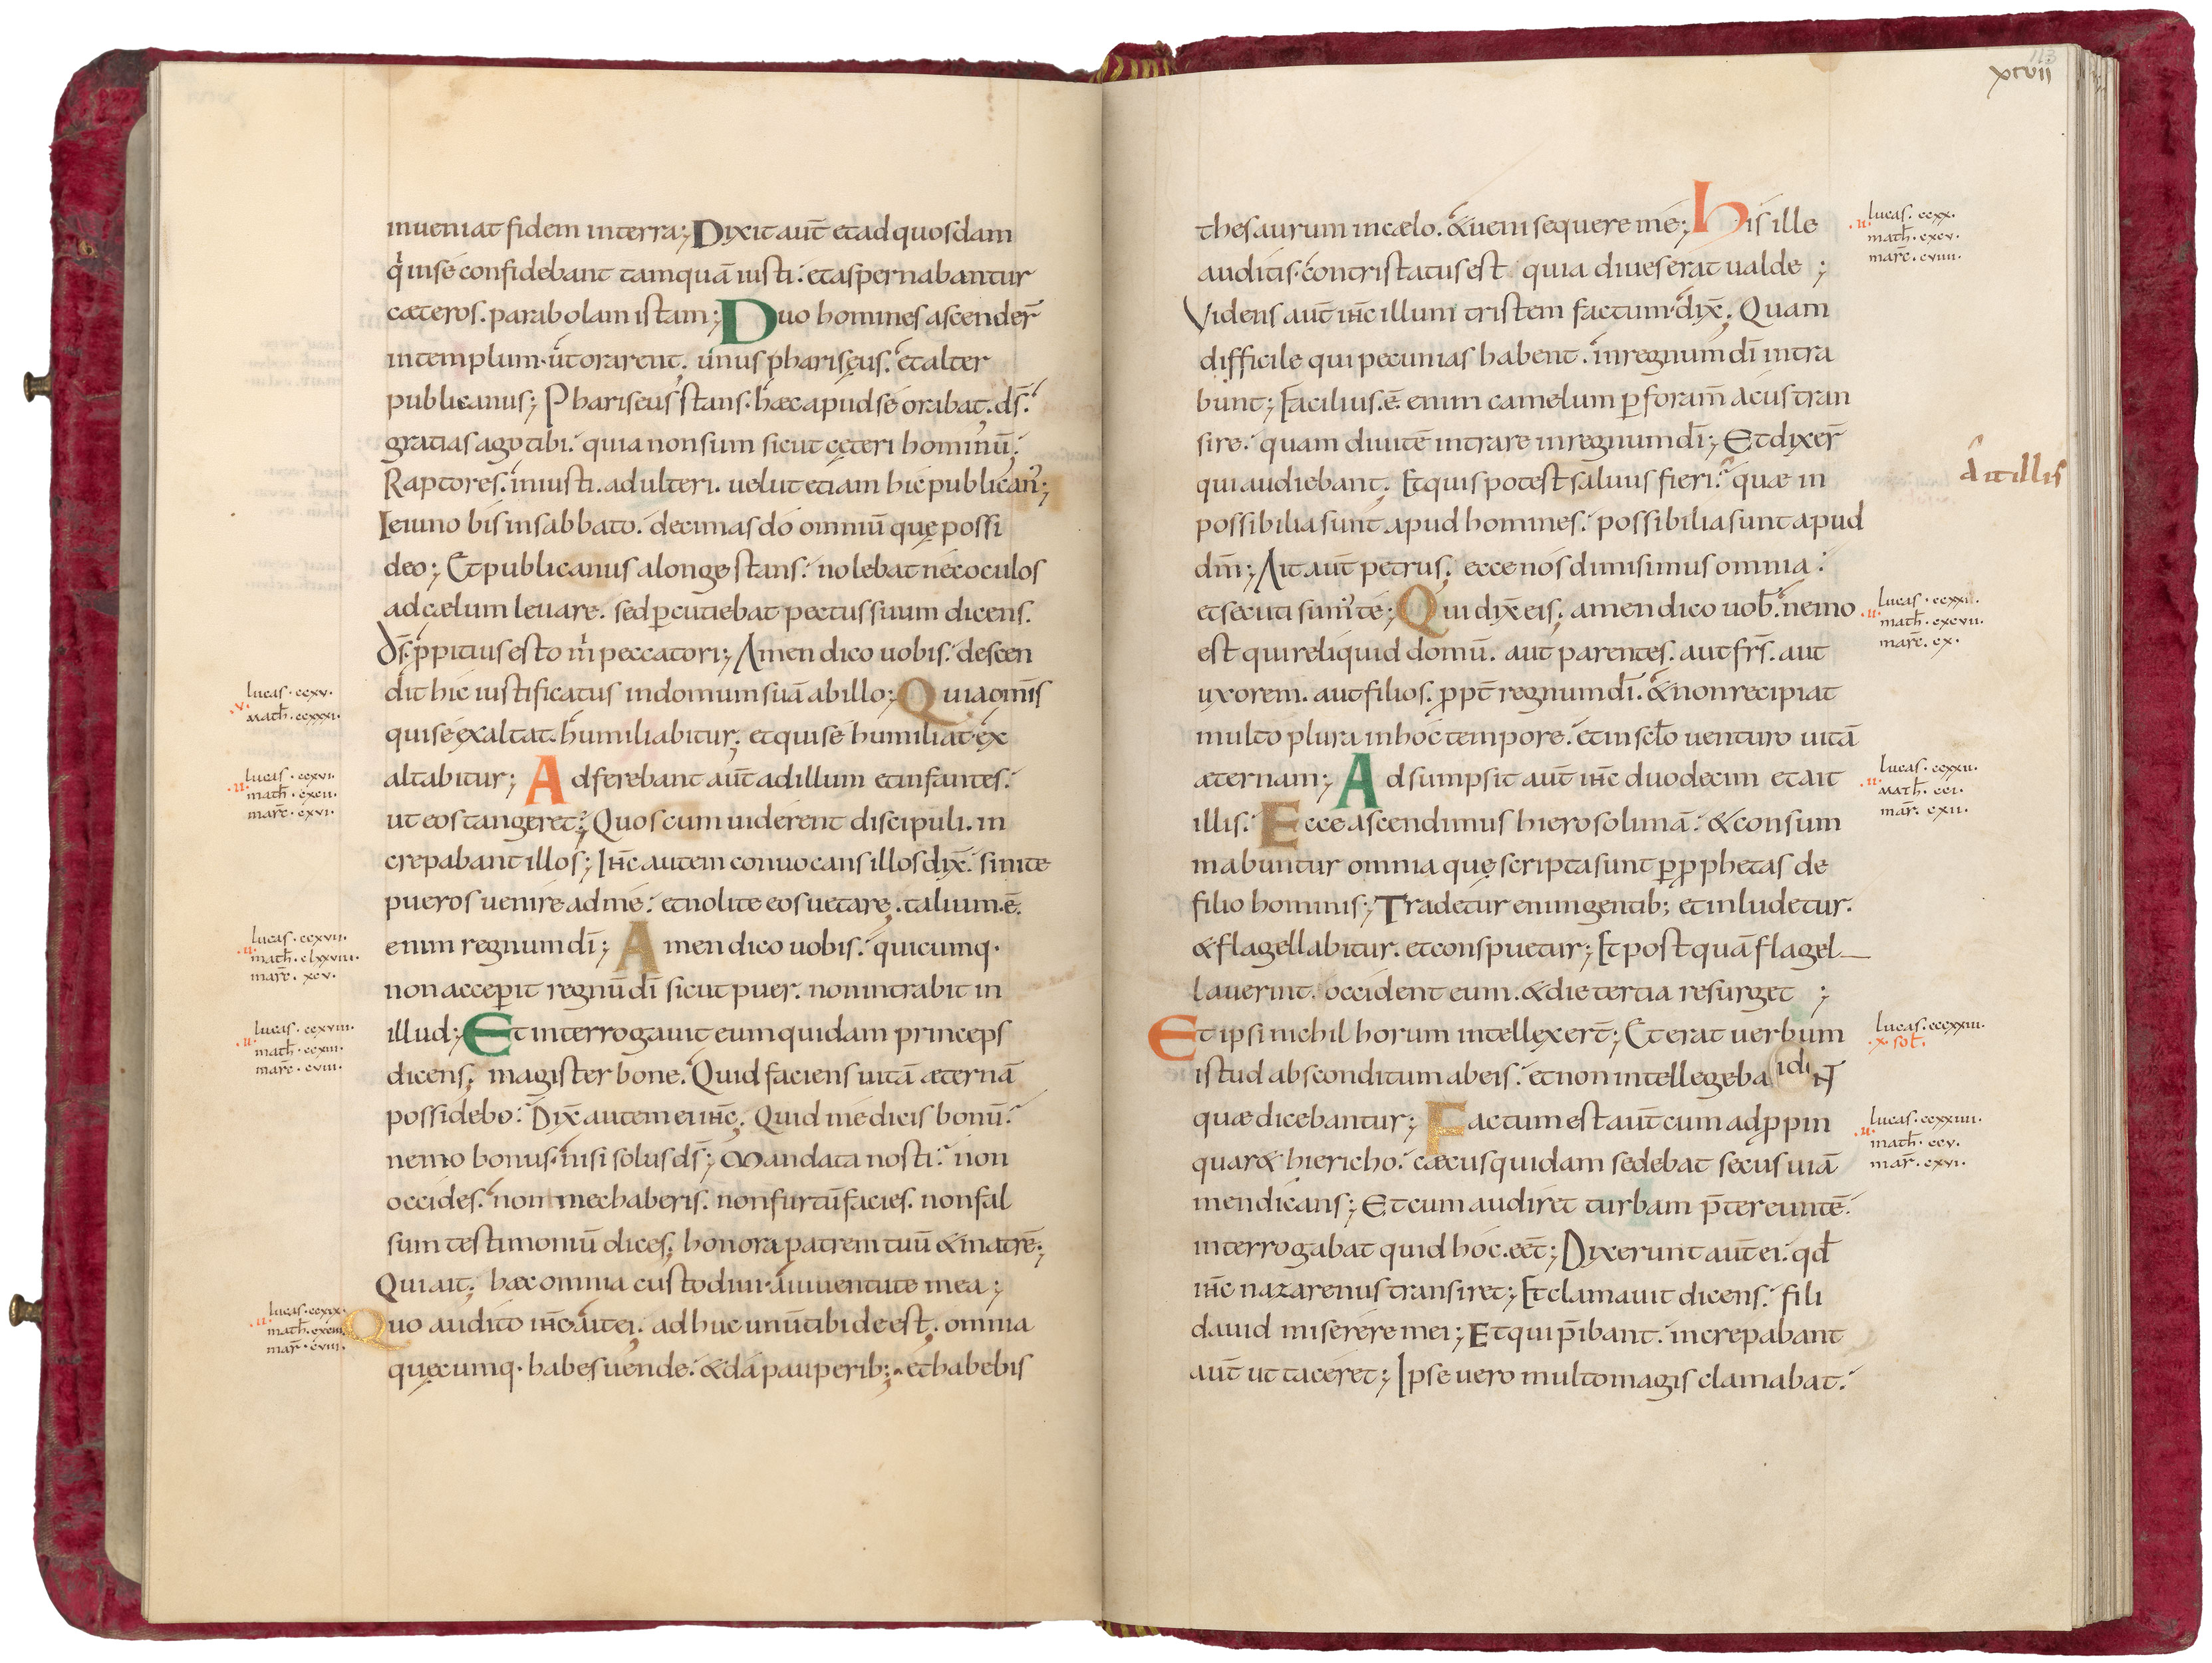 inueniat fidem in terra; Dixit aut̄ et ad quosdam
q̇ui in sé confidebant tamquā iusti. et aspernabantur
cæteros. parabolam istam; Duo homines ascender̄
in templum. út orarent. unus phariseus. et alter
publicanus; Phariseus stans. hæc apud sé orabat. dš.
gratias ago tibi. quia non sum sicut cęteri hominū.
Raptores. iniusti. adulteri. uelut etiam hic publican';
Ieiuno bis in sabbato. decimas dó omniū quę possi
deo; Et publicanus a longe stans. nolebat néc oculos
ad cælum leuare. sed pcutiebat pectus suum dicens.
dš. ppitius esto m̍ peccatori; Amen dico uobis. descen
dit hic iustificatus in domum suā ab illo; Quia om̄is
qui sé exaltat. humiliabitur. et qui sé humiliat. ex
altabitur; Adferebant aut̄ ad illum et infantes.
ut eos tangeret; Quos cum uiderent discipuli. in
crepabant illos; Ih̄c autem conuocans illos dix̄. sinite
pueros uenire ad mé. et nolite eos uetare. talium. ē.
enim regnum dī; Amen dico uobis. quicumq.
non acceperit regnū dī sicut puer. non intrabit in
illud; Et interrogauit eum quidam princeps
dicens; magister bone. Quid faciens uitā æternā
possidebo. Dix̄ autem ei ih̄c. Quid mé dicis bonū.
nemo bonus. nisi solus dš; Mandata nosti. non
occides. non mechaberis. non furtū facies. non fal
sum testimoniū dices; honora patrem tuū & matrē;
Qui ait; hæc omnia custodiui. a iuuentute mea;
Quo audito ih̄c ait ei. adhuc unū tibi deest. omnia
quęcumq. habes uende. & dá pauperib; et habebis
lucas. ccxv.
.v. math̄. ccxxxi.
lucas. ccxvi.
.ii. math̄. cxcii.
marc̄. cxvi.
lucas. ccxvii.
.ii. math̄. clxxviii.
marc̄. xcv.
lucas. ccxviii.
.ii. math̄. ccxiii.
marc̄. cviii.
lucas. ccxix.
.ii. math̄. cxciii.
mar̄. cviii.
113
xcvii
thesaurum in cælo. & ueni sequere mé; his ille
auditis. contristatus est quia diues erat ualde;
Videns aut̄ ih̄c illum tristem factum. dix̄. Quam
difficile qui pecunias habent. in regnum dī intra
bunt; Facilius. ē. enim camelum p foram̄ acus tran
sire. quam diuitē intrare in regnum dī; Et dixer̄
qui audiebant. Et quis potest saluus fieri. quæ in
possibilia sunt apud homines. possibilia sunt apud
dm̄; Ait aut̄ petrus. ecce nós dimisimus omnia.
et secuti sum' té; Qui dix̄ eis. amen dico uob̄. nemo
est qui reliquid domū. aut parentes. aut frs̄. aut
uxorem. aut filios. ppt̄ regnum dī. & non recipiat
multo plura in hóc tempore. et in sclo uenturo uitā
æternam; Adsumpsit aut̄ ih̄c duodecim et ait
illis. Ecce ascendimus hierosolimā. & consum
mabuntur omnia quę scripta sunt p pphetas de
filio hominis; Tradetur enim gentib; et inludetur.
& flagellabitur. et conspuetur; Et postquā flagel
lauerint. occident eum. & die tertia resurget;
Et ipsi nichil horum intellexert̄; Et erat uerbum
istud absconditum ab eis. et non intellegeba idi NT
quæ dicebantur; Factum est aut̄ cum adppin
quar& hiericho. cæcus quidam sedebat secus uiā
mendicans; Et cum audiret turbam p̄tereuntē.
interrogabat quid hóc. eēt; Dixerunt aut̄ ei. qđ
ih̄c nazarenus transiret; Et clamauit dicens. fili
dauid miserere mei; Et qui p̄ibant. increpabant
aut̄ ut taceret; Ipse uero multo magis clamabat.
lucas. ccxx.
.ii. math̄. cxcv.
marc̄. cviiii.
Ait illis
lucas. ccxxi.
.ii. math̄. cxcvii.
marc̄. cx.
lucas. ccxxii.
.ii. math̄. cci.
mar̄. cxii.
lucas. cccxxiii.
.x. sol̄.
lucas. ccxxiiii.
.ii. math̄. ccv.
mar̄. cxvi.